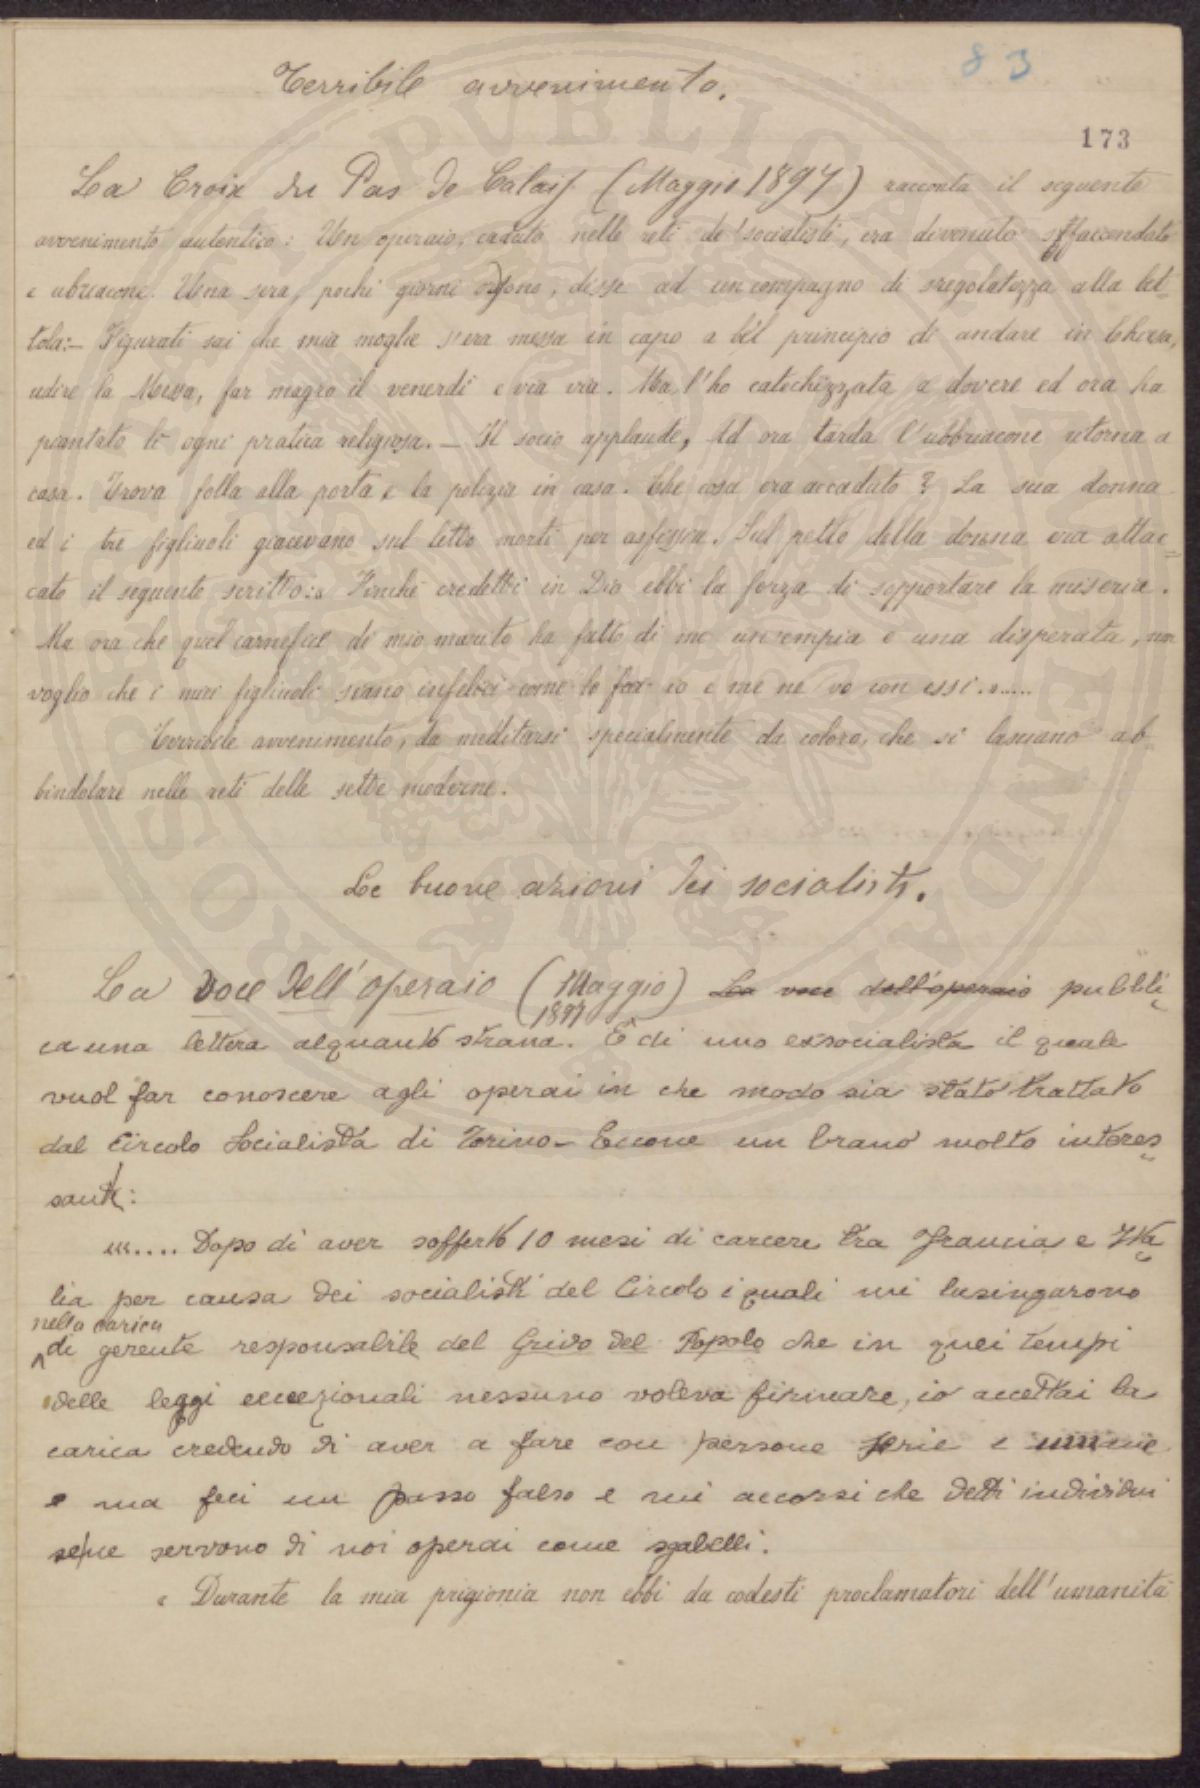 83
Terribile avvenimento.
173
La Croix du Pas de Calais (Maggio 1897) racconta il seguente
avvenimento autentico: Un operaio, caduto nelle reti de' socialisti, era divenuto sffaccendato
e ubriacone. Una sera, pochi giorni or sono, disse ad un compagno di sregolatezza alla bet-
tola:- Figurati sai che mia moglie s'era messa in capo a bel principio di andare in Chiesa,
udire la Messa, far magro il venerdì e via via. Ma l'ho catechizzata a dovere ed ora ha
piantato lì ogni pratica religiosa. - Il socio applaude, Ad ora tarda l'ubbriacone ritorna a
casa. Trova folla alla porta e la polizia in casa. Che cosa era accaduto? La sua donna
ed i tre figliuoli giacevano sul letto morti per asfissia. Sul petto della donna era attac-
cato il seguente scritto: « Finchè credetti in Dio ebbi la forza di sopportare la miseria.
Ma ora che quel carnefice di mio marito ha fatto di me un'empia e una disperata, non
voglio che i miei figliuoli siano infelici come lo fui io e me ne vo con essi.».....
Terribile avvenimento, da meditarsi specialmente da coloro, che si lasciano ab-
bindolare nelle reti delle sette moderne.
Le buone azioni dei socialisti.
La Voce dell'operaio (Maggio) La voce dell'operaio pubbli-
1897
ca una lettera alquanto strana. È di uno exsocialista il quale
vuol far conoscere agli operai in che modo sia stato trattato
dal Circolo Socialista di Torino - Eccone un brano molto interes-
sante:
«.... Dopo di aver sofferto 10 mesi di carcere tra Francia e Ita-
lia per causa dei socialisti del Circolo i quali mi lusingarono
nella carica
di gerente responsabile del Grido del Popolo che in quei tempi
delle leggi eccezionali nessuno voleva firmare, io accettai la
carica credendo di aver a fare con persone serie e umane
e ma feci un passo falso e mi accorsi che detti individui
se ne servono di noi operai come sgabelli.
« Durante la mia prigionia non ebbi da codesti proclamatori dell'umanità